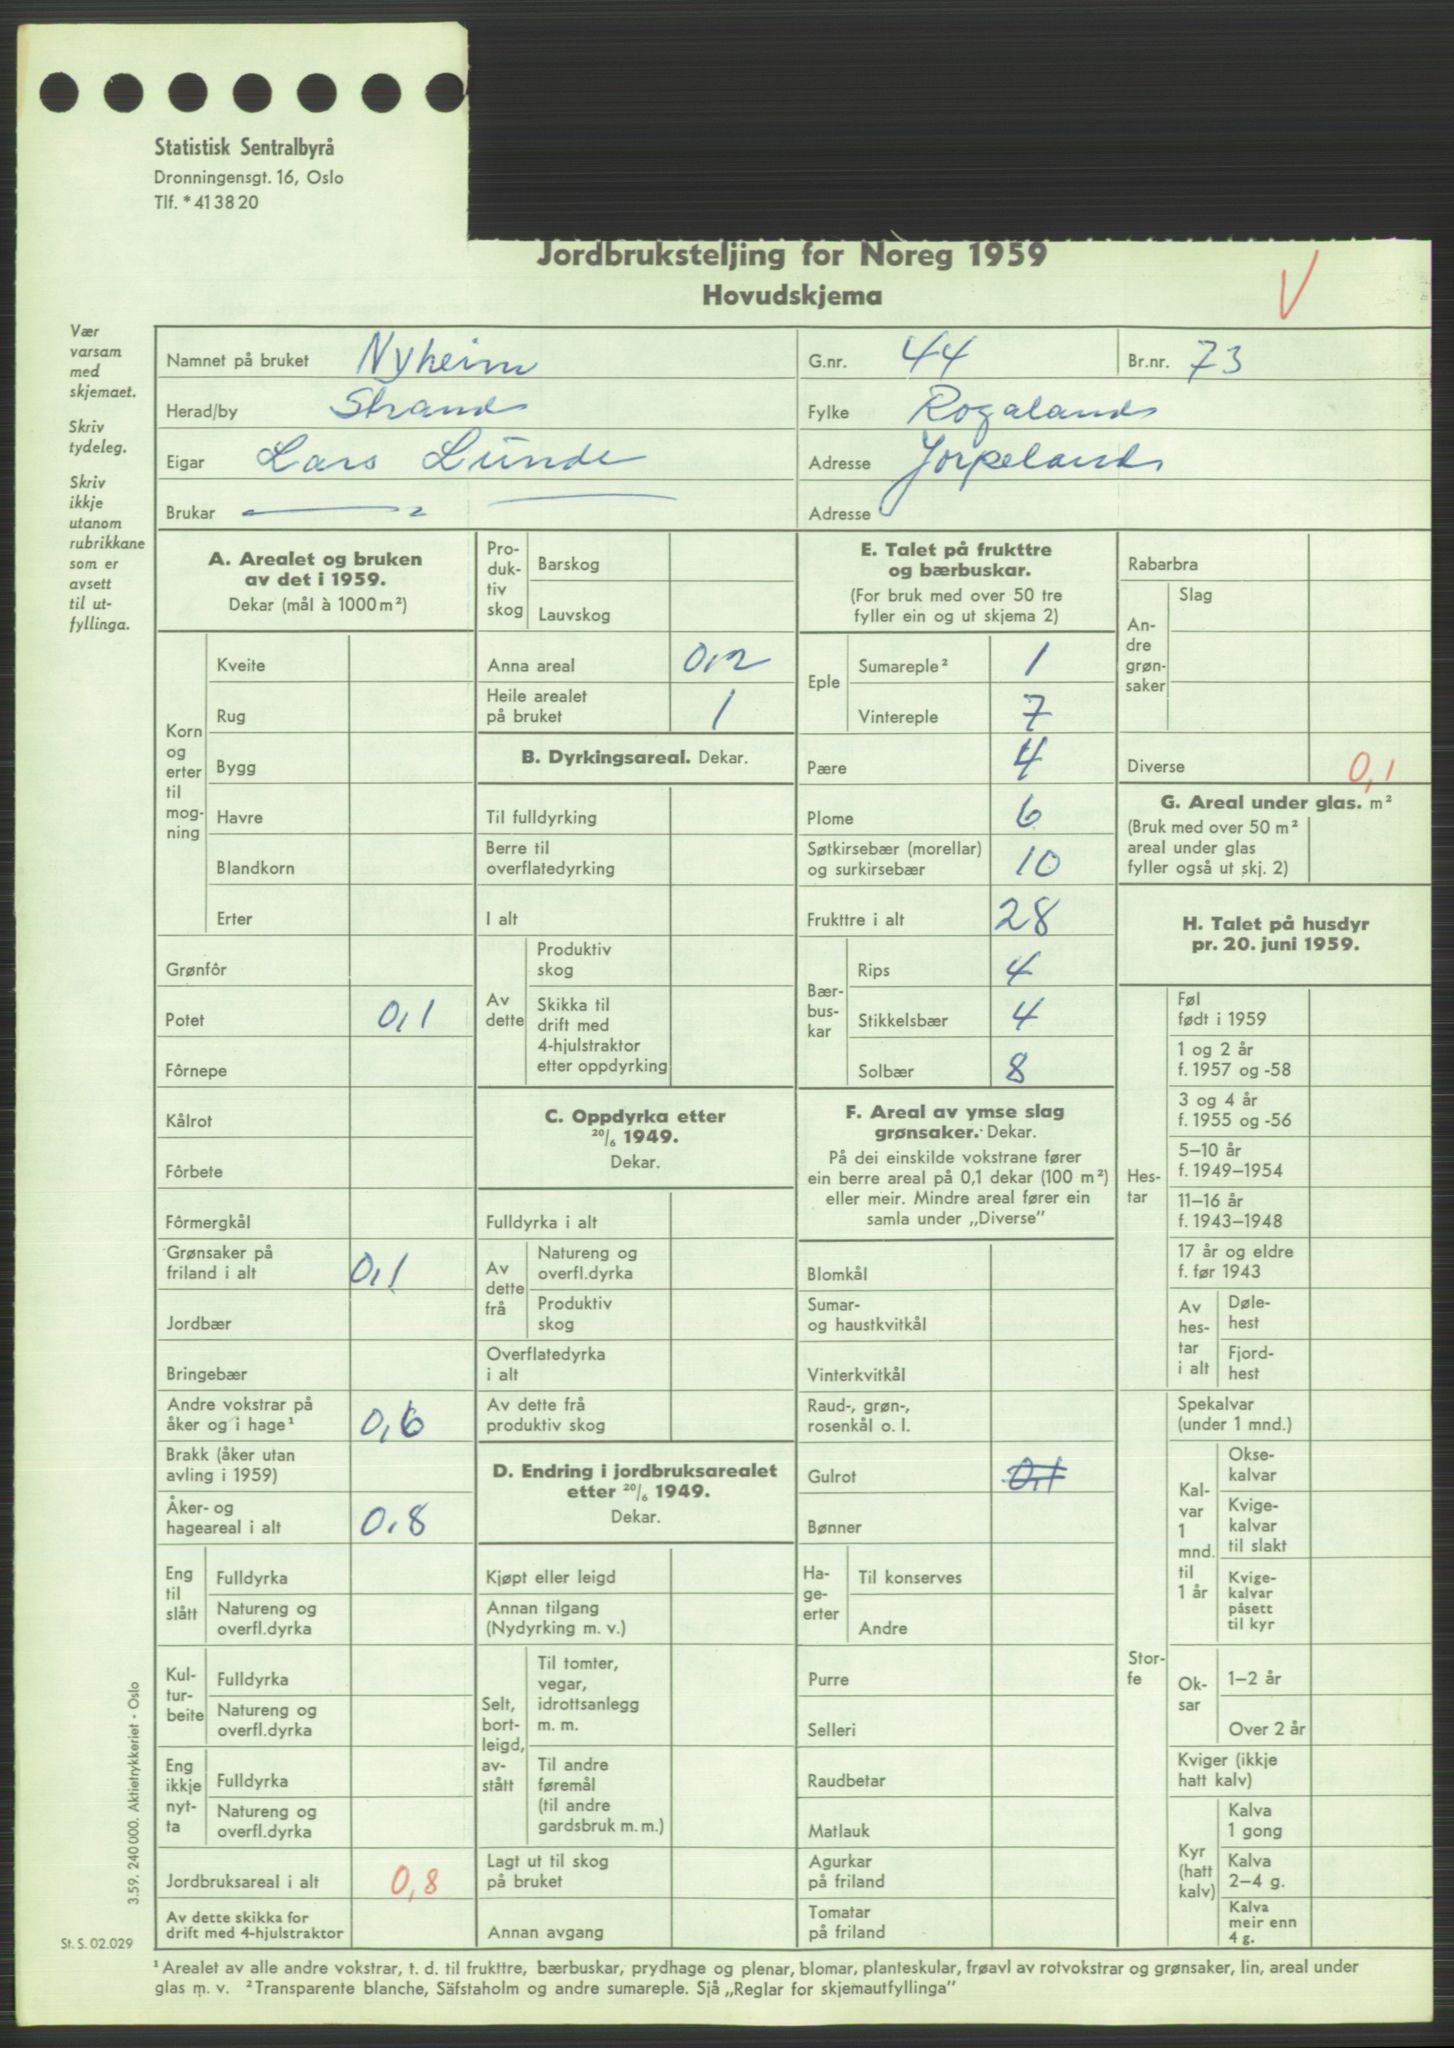 Statistisk Sentralbyrå
Dronningensgt. 16, Oslo
Tlf. * 41 38 20
Jordbruksteljing for Noreg 1959
Hovudskjema
V
Vær
varsam
med
skjemaet.
Skriv
tydeleg.
Skriv
ikkje
utanom
rubrikkane
som er
avsett
til ut-
fyllinga.
Namnet på bruket Nyheim
G.nr. 44 Br.nr. 73
Herad/by Strand
Fylke Rogaland
Eigar Lars Lunde
Adresse Jørpeland
Brukar
Adresse
A. Arealet og bruken
av det i 1959.
Dekar (mål à 1000 m²)
Korn
og
erter
til
mog-
ning
Kveite
Rug
Bygg
Havre
Blandkorn
Erter
Grønfôr
Potet 0,1
Fôrnepe
Kålrot
Fôrbete
Fôrmergkål
Grønsaker på
friland i alt 0,1
Jordbær
Bringebær
Andre vokstrar på
åker og i hage¹ 0,6
Brakk (åker utan
avling i 1959)
Åker- og
hageareal i alt 0,8
Eng
til
slått
Fulldyrka
Natureng og
overfl.dyrka
Kul-
tur-
beite
Fulldyrka
Natureng og
overfl.dyrka
Eng
ikkje
nyt-
ta
Fulldyrka
Natureng og
overfl.dyrka
Jordbruksareal i alt 0,8
Av dette skikka for
drift med 4-hjulstraktor
Pro-
duk-
tiv
skog
Barskog
Lauvskog
Anna areal 0,2
Heile arealet
på bruket 1
B. Dyrkingsareal. Dekar.
Til fulldyrking
Berre til
overflatedyrking
I alt
Av
dette
Produktiv
skog
Skikka til
drift med
4-hjulstraktor
etter oppdyrking
C. Oppdyrka etter
20/6 1949.
Dekar.
Fulldyrka i alt
Av
dette
frå
Natureng og
overfl.dyrka
Produktiv
skog
Overflatedyrka
i alt
Av dette frå
produktiv skog
D. Endring i jordbruksarealet
etter 20/6 1949.
Dekar.
Kjøpt eller leigd
Annan tilgang
(Nydyrking m. v.)
Selt,
bort-
leigd,
av-
stått
Til tomter,
vegar,
idrottsanlegg
m. m.
Til andre
føremål
(til andre
gardsbruk m. m.)
Lagt ut til skog
på bruket
Annan avgang
E. Talet på frukttre
og bærbuskar.
(For bruk med over 50 tre
fyller ein og ut skjema 2)
Eple
Sumareple² 1
Vintereple 7
Pære 4
Plome 6
Søtkirsebær (morellar)
og surkirsebær 10
Frukttre i alt 28
Bær-
bus-
kar
Rips 4
Stikkelsbær 4
Solbær 8
F. Areal av ymse slag
grønsaker. Dekar.
På dei einskilde vokstrane fører
ein berre areal på 0,1 dekar (100 m²)
eller meir. Mindre areal fører ein
samla under „Diverse”
Blomkål
Sumar-
og haustkvitkål
Vinterkvitkål
Raud-, grøn-,
rosenkål o. l.
Gulrot 0,1
Bønner
Ha-
ge-
erter
Til konserves
Andre
Purre
Selleri
Raudbetar
Matlauk
Agurkar
på friland
Tomatar
på friland
Rabarbra
An-
dre
grøn-
saker
Slag
Diverse 0,1
G. Areal under glas. m²
(Bruk med over 50 m²
areal under glas
fyller også ut skj. 2)
H. Talet på husdyr
pr. 20. juni 1959.
Hes-
tar
Føl
født i 1959
1 og 2 år
f. 1957 og -58
3 og 4 år
f. 1955 og -56
5–10 år
f. 1949–1954
11–16 år
f. 1943–1948
17 år og eldre
f. før 1943
Av
hes-
tar
i alt
Døle-
hest
Fjord-
hest
Stor-
fe
Spekalvar
(under 1 mnd.)
Kal-
var
1
mnd.
til
1 år
Okse-
kalvar
Kvige-
kalvar
til slakt
Kvige-
kalvar
påsett
til kyr
Ok-
sar
1–2 år
Over 2 år
Kviger (ikkje
hatt kalv)
Kyr
(hatt
kalv)
Kalva
1 gong
Kalva
2–4 g.
Kalva
meir enn
4 g.
3.59. 240 000. Aktietrykkeriet - Oslo
St. S. 02.029
¹ Arealet av alle andre vokstrar, t. d. til frukttre, bærbuskar, prydhage og plenar, blomar, planteskular, frøavl av rotvokstrar og grønsaker, lin, areal under
glas m. v. ² Transparente blanche, Säfstaholm og andre sumareple. Sjå „Reglar for skjemautfyllinga”